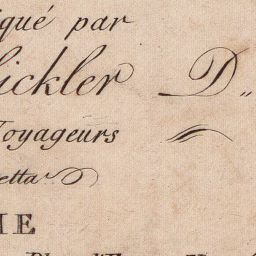 iqué par
ickler D..
Voyageurs
etta
IE